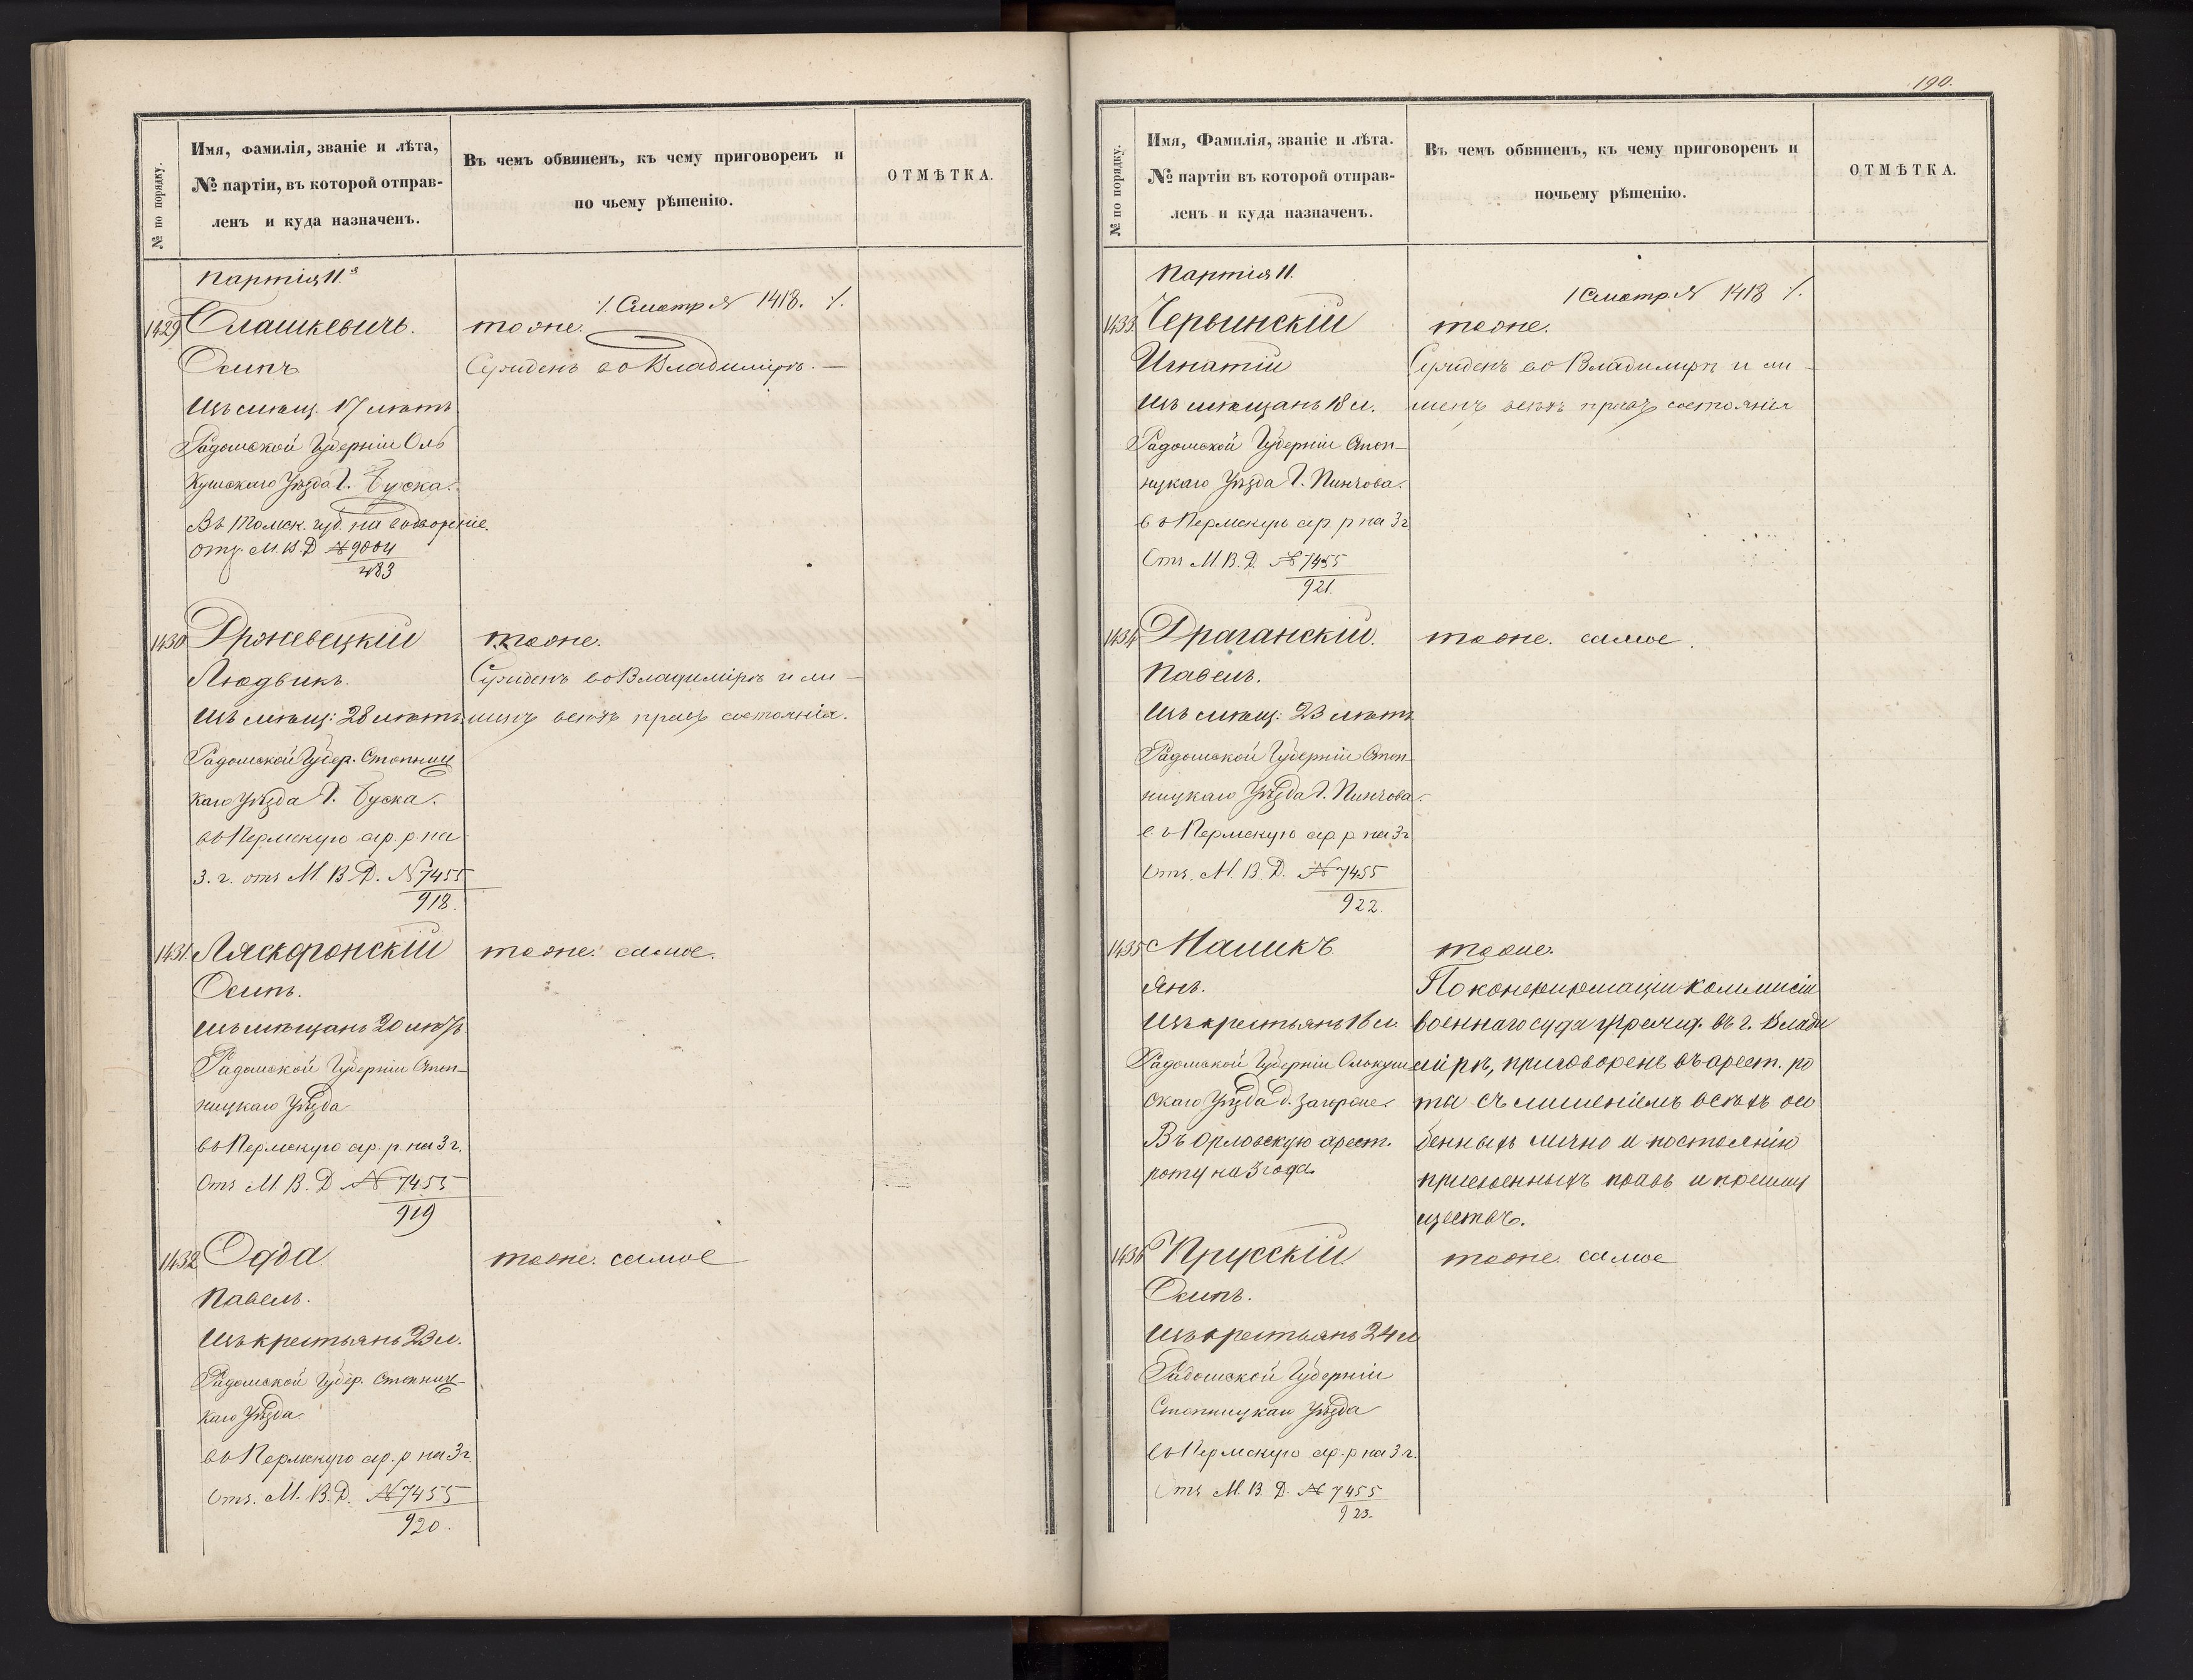 № по порядку.
Имя, фамилія, званіе и лѣта,
№ партіи, въ которой отправ-
ленъ и куда назначенъ.
Въ чемъ обвиненъ, къ чему приговоренъ и
по чьему рѣшенію.
ОТМѢТКА.
Партія 11я
Смотр № 1418.
1429 Олашкевичъ. тоже.
Осипъ Сужденъ во Владимірѣ. —
Изъ мѣщ. 17 лѣтъ
Радомской Губерніи Оль
кушскаго Уѣзда Г. Буска.
Въ Томск. губ. на водвореніе.
Отз. М. В. Д № 9004
483
1430 Држевецкій тоже.
Людвикъ. Сужденъ во Владимірѣ и ли-
Изъ мѣщ: 28 лѣтъ шенъ всѣхъ правъ состоянія.
Радомской Губер. Стопниц
каго Уѣзда Г. Буска.
въ Пермскую ар. р. на
3. г. отз М. В. Д. № 7455
918.
1431. Ляскоронскій тоже. самое.
Осипъ.
Изъ мѣщанъ 20 лѣтъ
Радомской Губерніи Стоп-
ницкаго Уѣзда
въ Пермскую ар. р на 3 г.
Отз М. В. Д № 7455
919
1432 Ода тоже. самое
Павелъ.
Изъ крестьянъ 23 л.
Радомской Губер. Стопниц-
каго Уѣзда.
въ Пермскую ар. р на 3 г
Отз. М. В. Д. № 7455
920.
190.
№ по порядку.
Имя, Фамилія, званіе и лѣта.
№ партіи въ которой отправ-
ленъ и куда назначенъ.
Въ чемъ обвиненъ, къ чему приговоренъ и
почьему рѣшенію.
ОТМѢТКА.
Партія 11.
Смотр. № 1418
1433 Червинскій тоже.
Игнатій Сужденъ во Владимірѣ и ли-
Изъ мѣщанъ 18 л. шенъ всѣхъ правъ состоянія
Радомской Губерніи Стоп-
ницкаго Уѣзда Г. Пинчова.
въ Пермскую ар. р на 3 г
Отз М. В. Д. № 7455
921.
1434 Драганскій. тоже. самое.
Павелъ.
Изъ мѣщ: 23 лѣтъ
Радомской Губерніи Стоп-
ницкаго Уѣзда Г. Пинчова.
въ Пермскую ар р на 3 г
Отз. М. В. Д. № 7455
922.
1435 Маликъ. тоже.
Янъ. По конфирмаціи коммисіи
Изъ крестьянъ 18 л. военнаго суда учрежд. въ г. Влади
Радомской Губерніи Олькуш мірѣ, приговоренъ въ арест. ро
скаго Уѣзда д. ты съ лишеніемъ всѣхъ осо
Въ Орловскую арест. бенныхъ лично и по состоянію
роту на 3 года присвоенныхъ правъ и преиму
ществъ.
1436 Прусскій тоже. самое
Осипъ.
Изъ крестьянъ 24 л
Радомской Губерніи
Стопницкаго Уѣзда
въ Пермскую ар. р на 3 г.
Отз М. В. Д. № 7455
923.